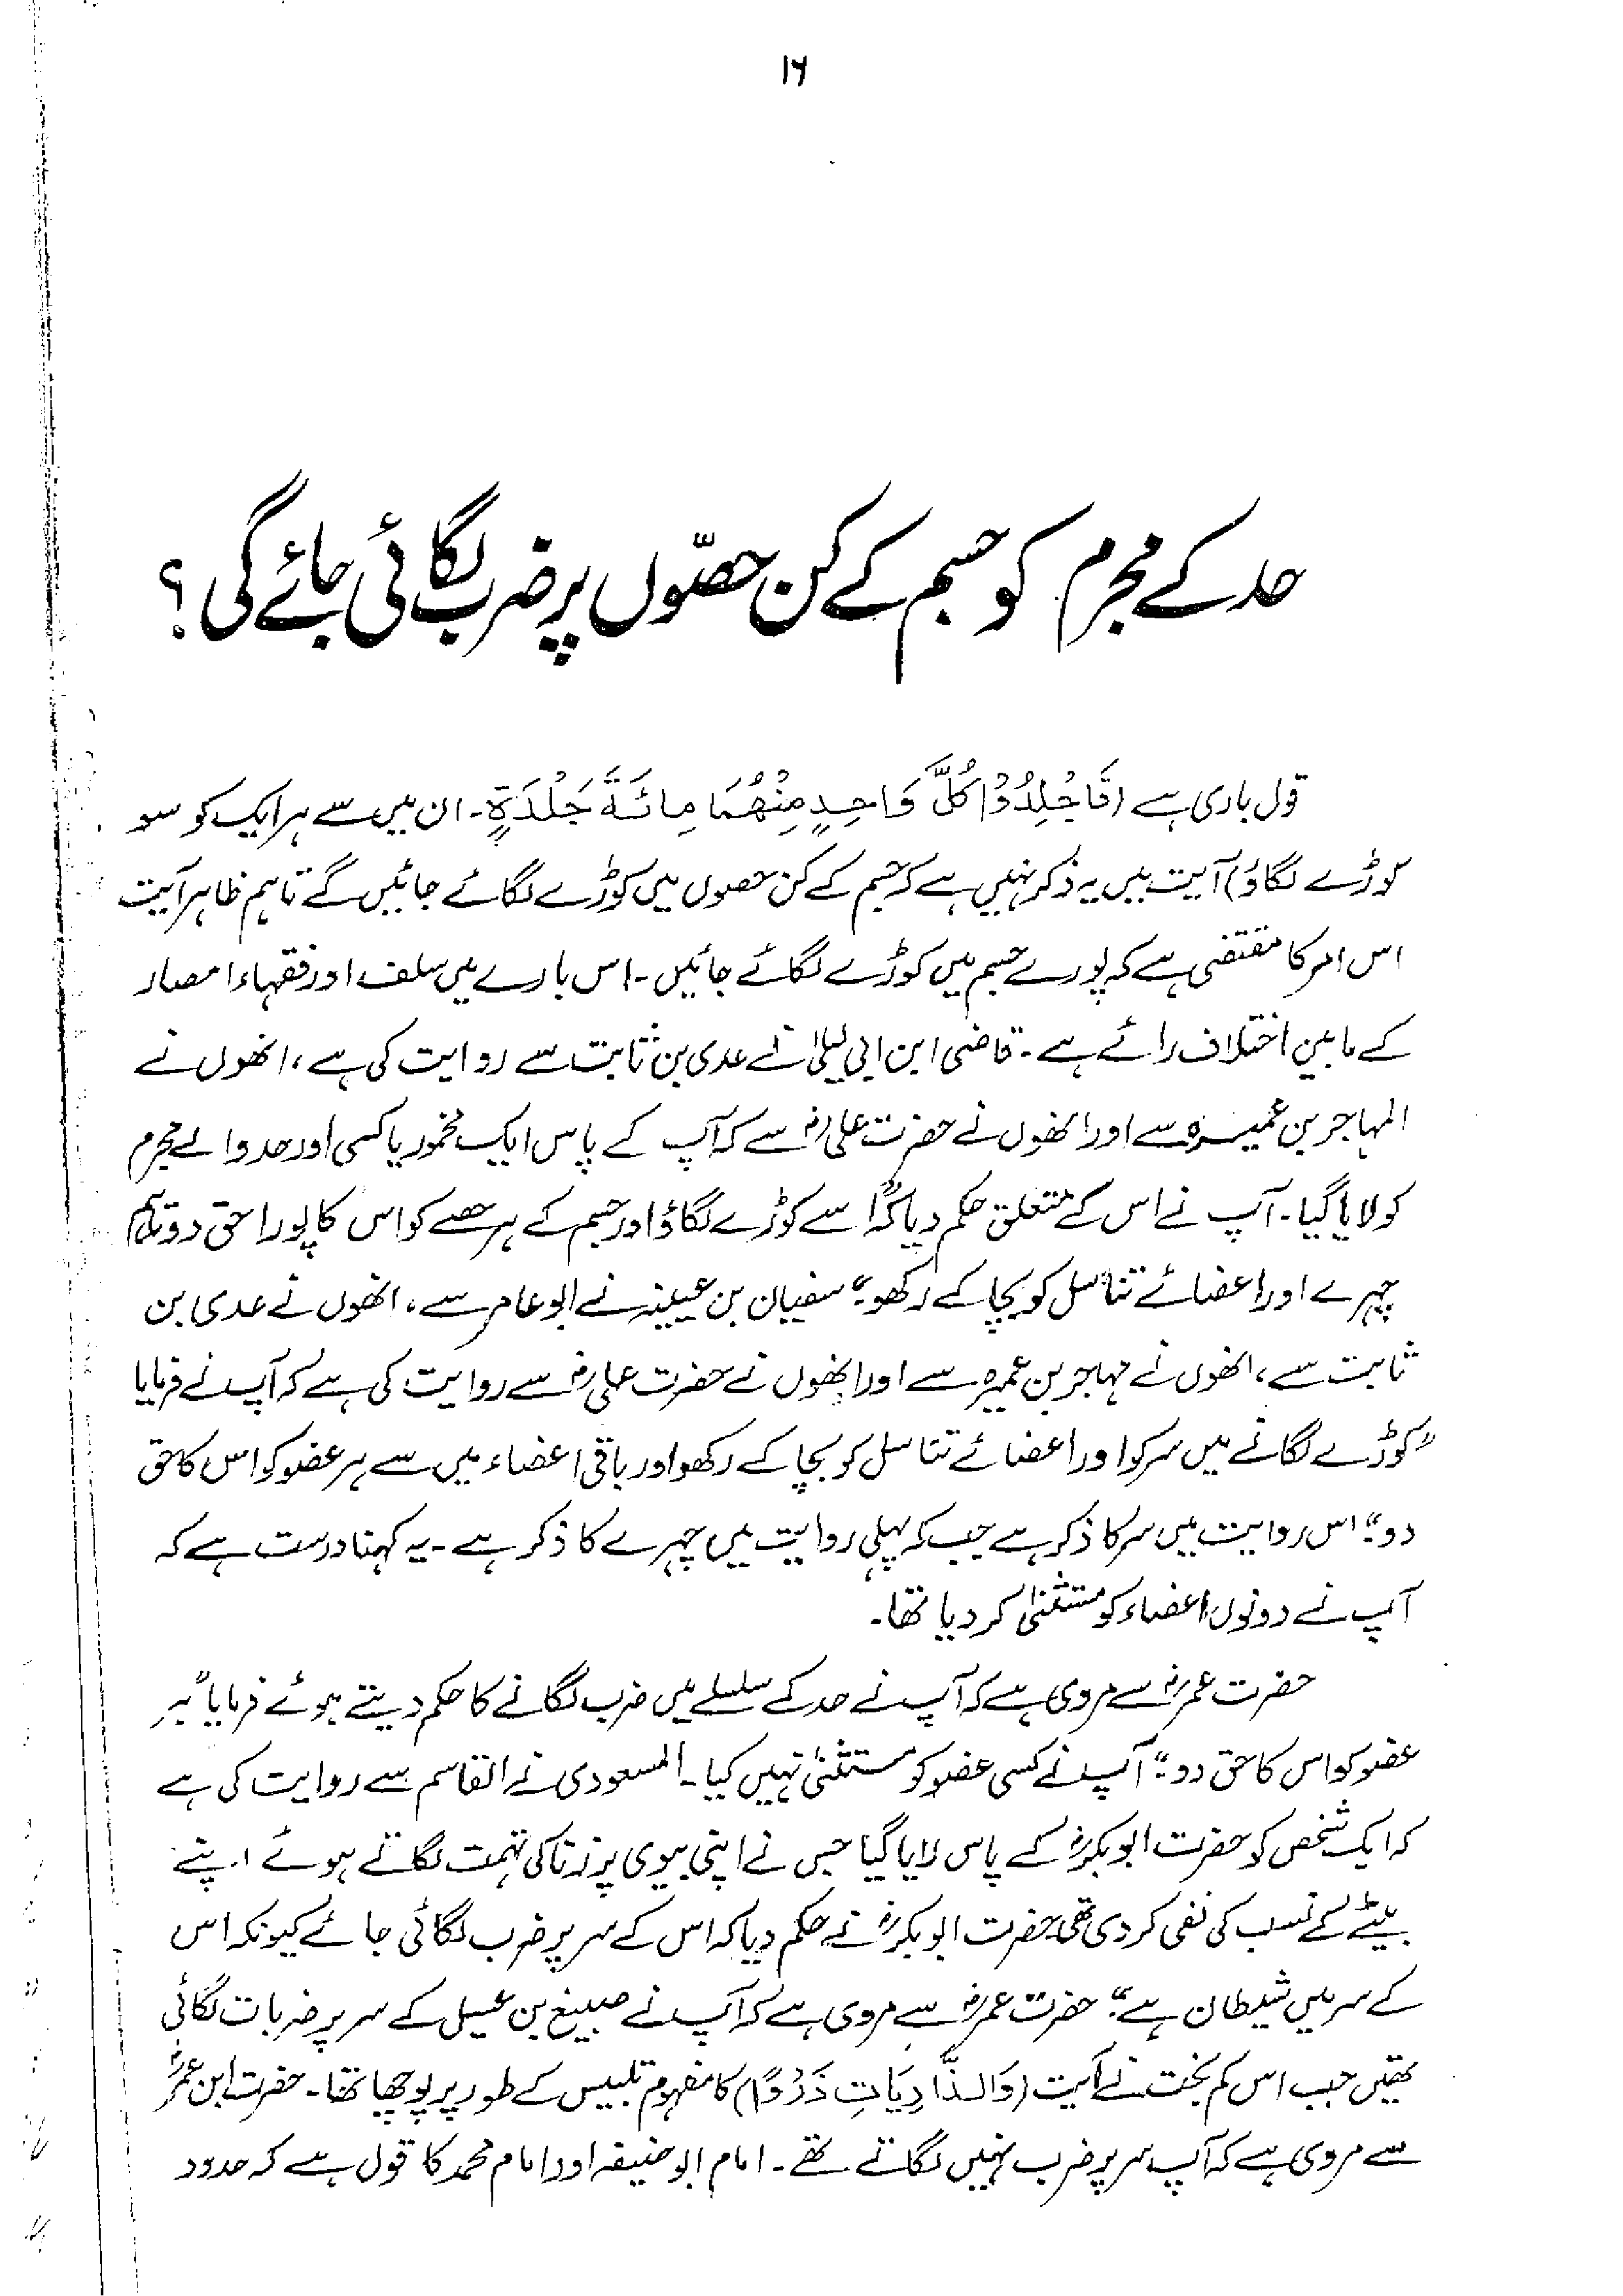 ۱۶
حد کے مجرم کو جسم کے کن حصّوں پر ضرب لگائی جائے گی؟
قول باری ہے (فَاجْلِدُوْا كُلَّ وَاحِدٍ مِنْهُمَا مِائَةَ جَلْدَةٍ۔ ان میں سے ہر ایک کو سو
کوڑے لگاؤ) آیت میں یہ ذکر نہیں ہے کہ جسم کے کن حصوں میں کوڑے لگائے جائیں گے تاہم ظاہر آیت
اس امر کا مقتضی ہے کہ پورے جسم میں کوڑے لگائے جائیں۔ اس بارے میں سلف اور فقہاء امصار
کے مابین اختلاف رائے ہے۔ قاضی ابن ابی لیلیٰ نے عدی بن ثابت سے روایت کی ہے، انھوں نے
المہاجر بن عمیرہ سے اور انھوں نے حضرت علیؓ سے کہ آپ کے پاس ایک مخمور یا کسی اور حد والے مجرم
کو لایا گیا۔ آپ نے اس کے متعلق حکم دیا کہ "اسے کوڑے لگاؤ اور جسم کے ہر حصے کو اس کا پورا حق دو تاہم
چہرے اور اعضائے تناسل کو بچا کے رکھو"۔ سفیان بن عیینہ نے ابو عامر سے، انھوں نے عدی بن
ثابت سے، انھوں نے مہاجر بن عمیرہ سے اور انھوں نے حضرت علیؓ سے روایت کی ہے کہ آپ نے فرمایا
"کوڑے لگانے میں سر کو اور اعضائے تناسل کو بچا کے رکھو اور باقی اعضاء میں سے ہر عضو کو اس کا حق
دو"۔ اس روایت میں سر کا ذکر ہے جب کہ پہلی روایت میں چہرے کا ذکر ہے۔ یہ کہنا درست ہے کہ
آپ نے دونوں اعضاء کو مستثنیٰ کر دیا تھا۔
حضرت عمرؓ سے مروی ہے کہ آپ نے حد کے سلسلے میں ضرب لگانے کا حکم دیتے ہوئے فرمایا "ہر
عضو کو اس کا حق دو"۔ آپ نے کسی عضو کو مستثنیٰ نہیں کیا۔ المسعودی نے القاسم سے روایت کی ہے
کہ ایک شخص کو حضرت ابوبکرؓ کے پاس لایا گیا جس نے اپنی بیوی پر زنا کی تہمت لگاتے ہوئے اپنے
بیٹے کے نسب کی نفی کر دی تھی حضرت ابوبکرؓ نے حکم دیا کہ اس کے سر پر ضرب لگائی جائے کیونکہ اس
کے سر میں شیطان ہے"۔ حضرت عمرؓ سے مروی ہے کہ آپ نے صبیغ بن عسیل کے سر پر ضربات لگائی
تھیں جب اس کم بخت نے آیت (وَالذَّارِيَاتِ ذَرْوًا) کا مفہوم تلبیس کے طور پر پوچھا تھا۔ حضرت ابن عمرؓ
سے مروی ہے کہ آپ سر پر ضرب نہیں لگاتے تھے۔ امام ابو حنیفہ اور امام محمد کا قول ہے کہ حدود